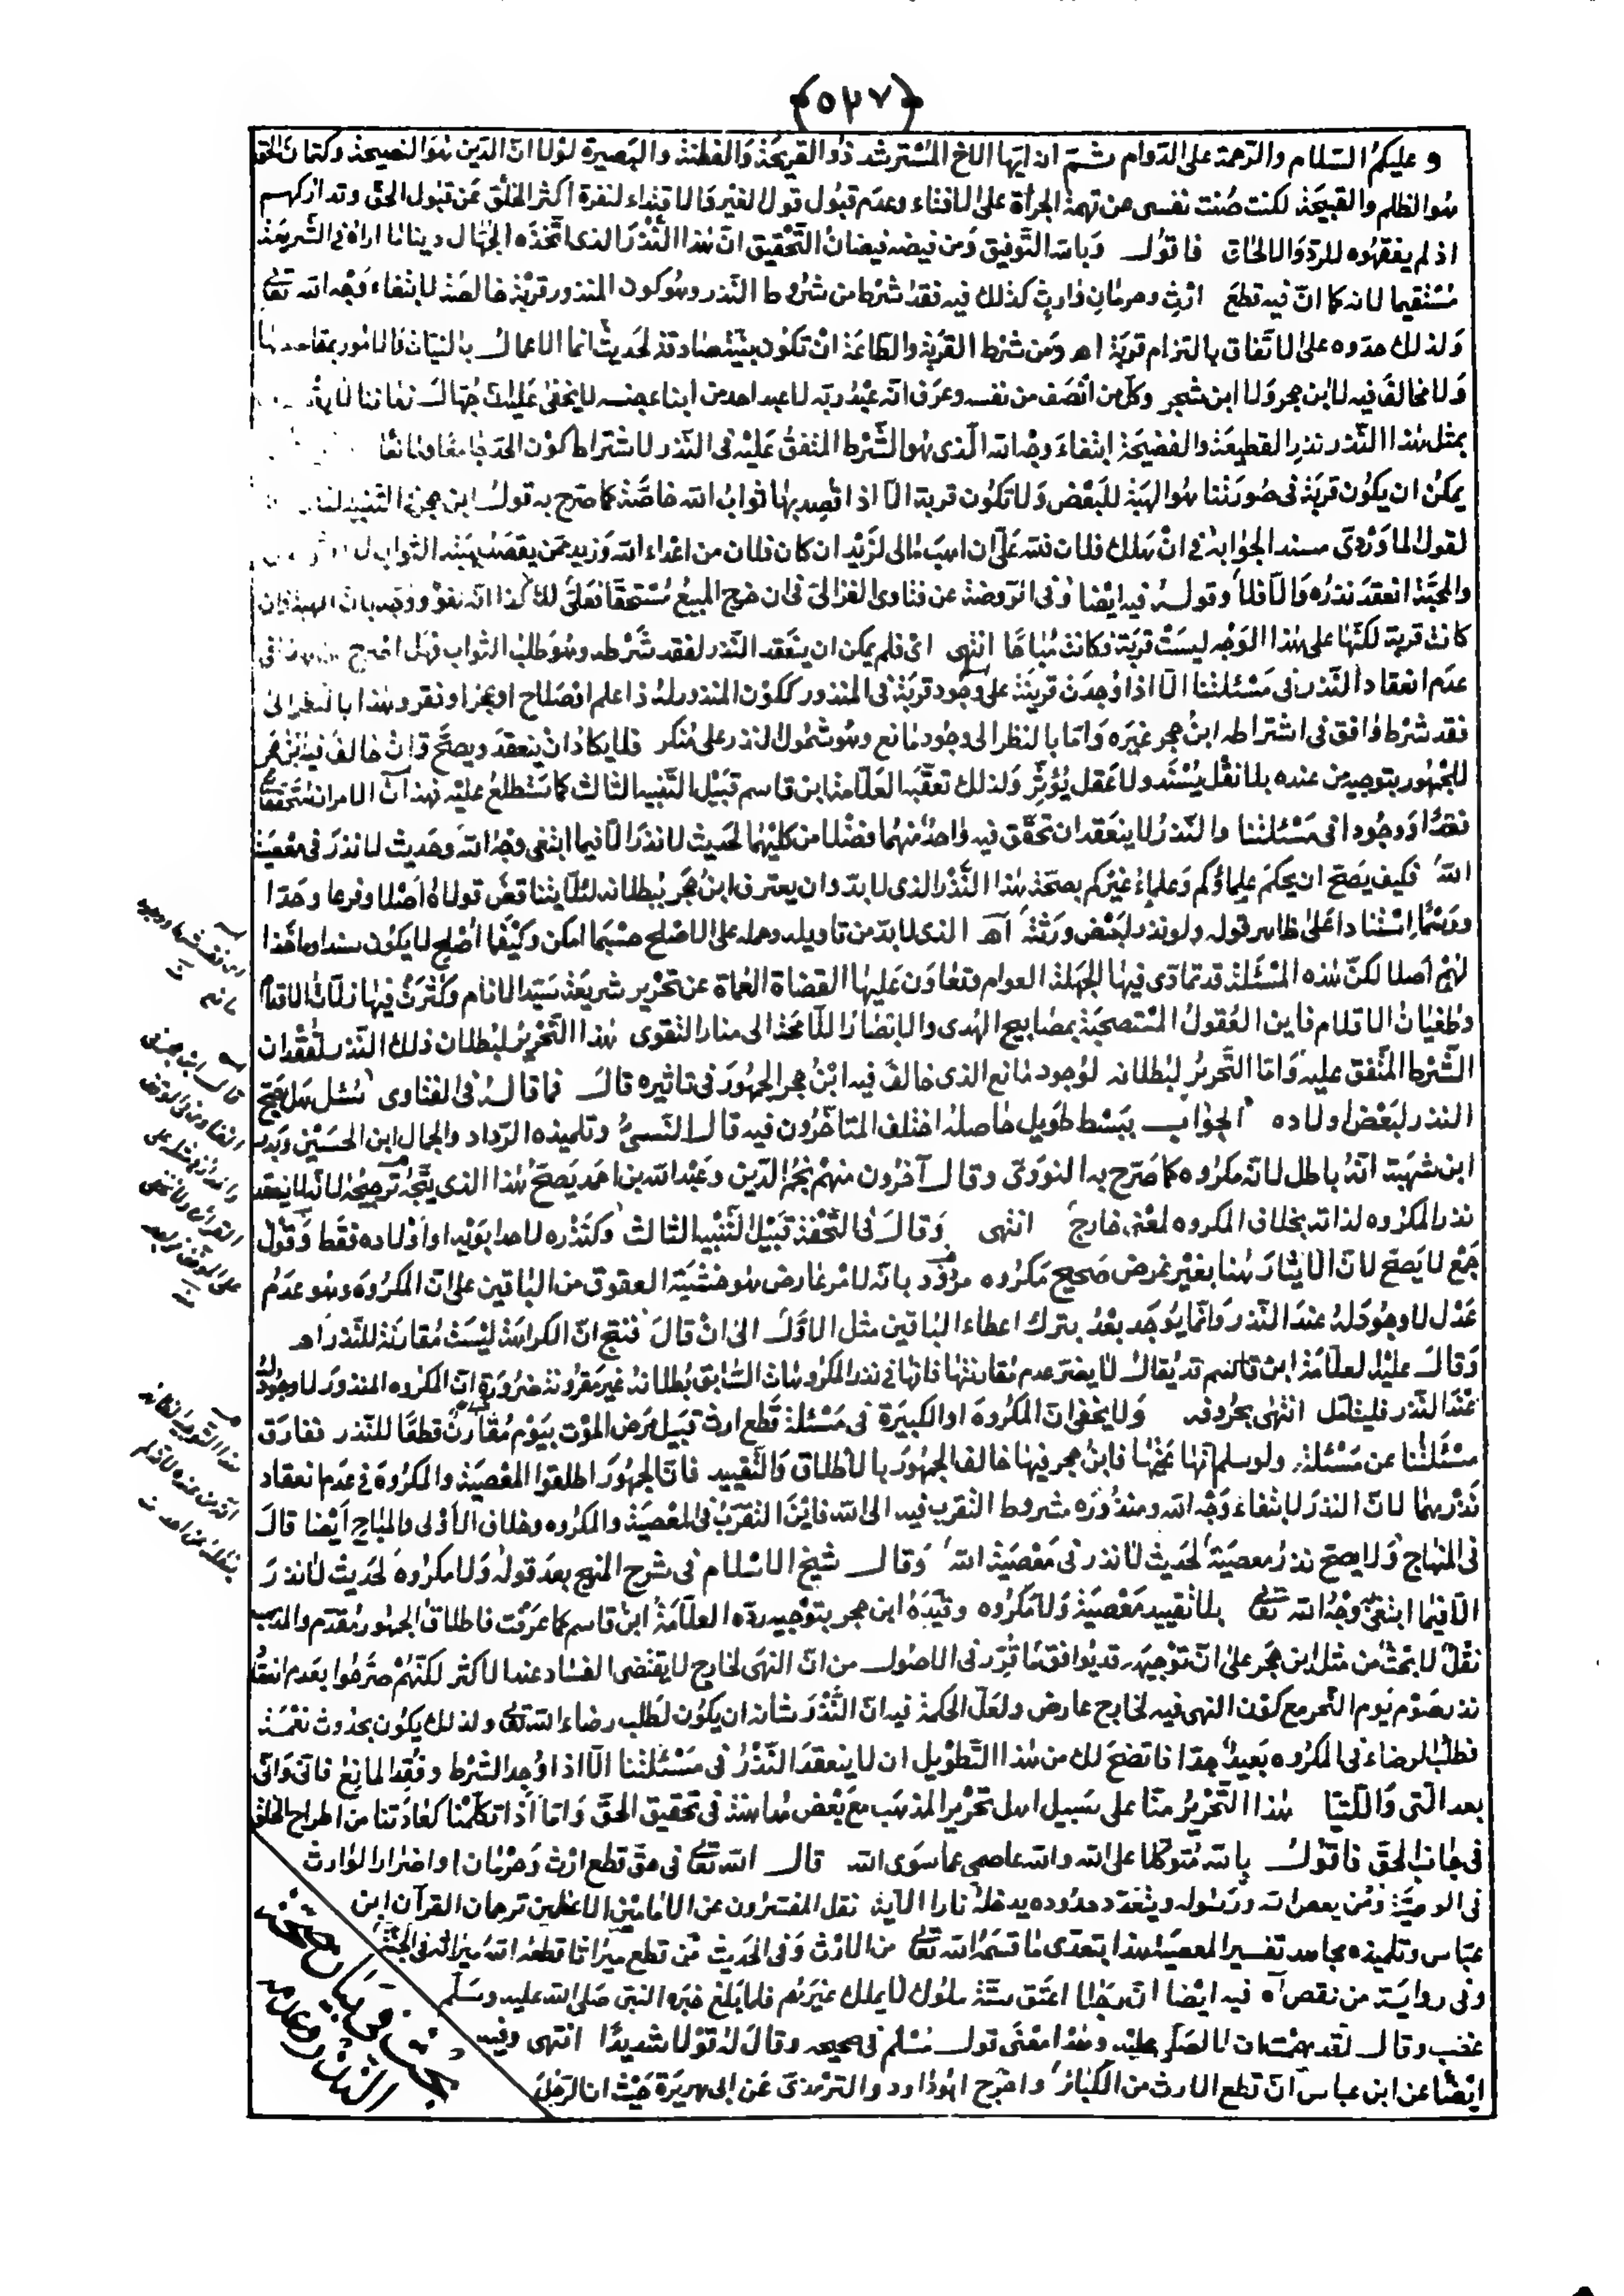 ﴿٥٣٧﴾
و عليكم السّلام والرّحمة على الدّوام ثمّ ان ايها الاخ المسترشد ذو القريحة والفطنة والبصيرة لولا انّ الدّين هو النصيحة وكتمان الحق
هو الظلم والقبيحة لكنت صنت نفسى من تهمة الجرأة على الافتاء وعدم قبول قول الغير فالاقتداء لنفرة اكثر الخلق عن قبول الحق وتداركهم
اذ لم يفقهوه للردّ والالحاق فاقول وبالله التّوفيق ومن فيضه فيضان التّحقيق انّ هذا النّذر الذى اتّخذه الجهّال دينا ما اراه فى الشّريعة
مستقيما لانه كما انّ فيه قطع ارث وحرمان وارث كذلك فيه فقد شرط من شروط النّذر وهو كون المنذور قربة خالصة لابتغاء وجه الله تعالى
ولذلك حدّوه على الاتّفاق بالتزام قربة اه ومن شرط القربة والطاعة ان تكون بنيّة صادقة لحديث انما الاعمال بالنيات فالامور بمقاصدها
ولا مخالف فيه لا ابن حجر ولا ابن شجر وكل من أنصف من نفسه وعرف انّه عبد ربّه لا عبد احد من ابناء جنسه لا يخفى عليك جهّال زماننا لا
بمثل هذا النّذر نذر القطيعة والفضيحة ابتغاء وجه الله الّذى هو الشّرط المتّفق عليه فى النّذر لاشتراط كون الحد جامعا ومانعا
يمكن ان يكون قربة فى صورتنا هو الهبة للبعض ولا تكون قربة الّا اذا قصد بها ثواب الله خاصّة كما صرّح به قول ابن حجر فى التّنبيه
لقول الماوردى مسند الجوابه فى ان هلك فلان فلله علىّ ان اهب مالى لزيد ان كان فلان من اعداء الله وزيد ممن يقصد بهبته الثواب
والمحبّة انعقد نذره والّا فلا وقوله فيه ايضا وفى الرّوضة عن فتاوى الغزالى فى ان خرج المبيع مستحقّا فعلىّ لك كذا انّه لغو ووجه بان الهبة وان
كانت قربة لكنّها على هذا الوجه ليست قربة فكانت مباحًا انتهى اى فلم يمكن ان ينعقد النّذر لفقد شرطه وهو طلب الثواب فهل اصرح من هذا فى
عدم انعقاد النّذر فى مسئلتنا الّا اذا وجدت قرينة على وجود قربة فى المنذور ككون المنذور له ذا علم او صلاح او عجز او فقر وهذا بالنظر الى
فقد شرط وافق فى اشتراطه ابن حجر غيره وامّا بالنظر الى وجود مانع وهو شمول النذر على منكر فلا يكاد ان ينعقد ويصحّ وان خالف فيه ابن حجر
للجمهور بتوجيه من عنده بلا نقل يسند ولا عقل يؤثّر ولذلك تعقّبه العلّامة ابن قاسم قبيل التّنبيه الثالث كما ستطلع عليه فهذا الامران متحققان
فقدًا ووجودا فى مسئلتنا والنّذر لا ينعقد ان تحقّق فيه واحد منهما فضلا من كليهما لحديث لا نذر الّا فيما ابتغى وجه الله وحديث لا نذر فى معصية
الله فكيف يصحّ ان يحكم علماؤكم وعلماء غيركم بصحّة هذا النّذر الذى لا بدّ وان يعترف ابن حجر ببطلانه لئلّا يتناقض قولاه أصلا وفرعا وحدّا
ورسما استنادا على ظاهر قوله ولو نذر لبعض ورثته آه الذى لا بدّ من تاويله وحمله على الاصلح حسبما امكن وكيفما أصلح لا يكون سندا وماخذا
لهم اصلا لكنّ هذه المسئلة قد تمادى فيها الجهلة العوام وتعاون عليها القضاة العماة عن تحرير شريعة سيّد الانام وكثرت فيها زلّات الاقدام
وطغيان الاقلام فاين العقول المستصبحة بمصابيح الهدى والابصار اللّامحة الى منار التقوى هذا التّحرير لبطلان ذلك النّذر لفقدان
الشّرط المتّفق عليه وامّا التّحرير لبطلانه لوجود مانع الذى خالف فيه ابن حجر الجمهور فى تاثيره قال فما قاله فى الفتاوى سئل هل يصحّ
النذر لبعض اولاده الجواب ببسط طويل حاصله اختلف المتاخّرون فيه قال النّسىّ وتلميذه الردّاد والجمال ابن الحسين وبدر
ابن شهبة انّه باطل لانّه مكروه كما صرّح به النووى وقال آخرون منهم نجم الدّين وعبد الله بن احمد يصحّ هذا الذى يتّجه ترجيحه لانّه لا ينعقد
نذر المكروه لذاته بخلاف المكروه لمعنى خارج انتهى وقال فى التّحفة قبيل التّنبيه الثالث وكنذره لاحد ابويه او اولاده فقط وقول
جمع لا يصحّ لانّ الايثار هنا بغير غرض صحيح مكروه مردود بانّه لامر عارض هو خشية العقوق من الباقين على انّ المكروه وهو عدم
عدل لا وجود له عند النّذر وانّما يوجد بعد بترك اعطاء الباقين مثل الاوّل الى ان قال فنتج انّ الكراهة ليست مقارنة للنّذر اه
وقال عليه العلّامة ابن قاسم قد يقال لا يضرّ عدم مقارنتها فانّها فى نذر المكروهات السّابق بطلانه غير مقرونة ضرورة انّ المكروه المنذور لا وجود له
عند النّذر فليتأمل انتهى بحروفه ولا يخفى انّ المكروه او الكبيرة فى مسئلة قطع ارث قبيل مرض الموت بيوم مقارن قطعًا للنّذر ففارق
مسئلتنا عن مسئلته ولو سلم انها عينها فابن حجر فيها خالف الجمهور بالاطلاق والتّقييد فانّ الجمهور اطلقوا المعصية والمكروه فى عدم انعقاد
نذرهما لانّ النذر لابتغاء وجه الله ومنذوره مشروط التقرب فيه الى الله فاين التقرّب فى المعصية والمكروه وخلاف الأولى والمباح أيضا قال
فى المنهاج ولا يصحّ نذر معصية لحديث لا نذر فى معصية الله وقال شيخ الاسلام فى شرح المنهج بعد قوله ولا مكروه لحديث لا نذر
الّا فيما ابتغى به وجه الله تعالى بلا تقييد معصية ولا مكروه وقيّده ابن حجر بتوجيه ردّه العلّامة ابن قاسم كما عرفت فاطلاق الجمهور مقدّم والمذهب
نقل لا بحث من مثل ابن حجر على انّ توجيهه قد يوافق ما قرّر فى الاصول من انّ النهى لخارج لا يقتضى الفساد عند الاكثر لكنّهم صرّحوا بعدم انعقاد
نذر صوم يوم النّحر مع كون النهى فيه لخارج عارض ولعلّ الحكمة فيه انّ النّذر شانه ان يكون لطلب رضاء الله تعالى ولذلك يكون بحدوث نعمة
فطلب الرضاء فى المكروه بعيد جدّا فاتضح لك من هذا التّطويل ان لا ينعقد النّذر فى مسئلتنا الّا اذا وجد الشرط وفقد المانع فانّى وانّى
بعد الّتى والّلتيّا هذا التّحرير منّا على سبيل اهل تحرير المذهب مع بعض مداهنة فى تحقيق الحقّ وامّا اذا تكلّمنا كعادتنا من اطراح الخلق
فى جانب الحقّ فاقول بالله متوكّلا على الله والله عاصمى عمّا سوى الله قال الله تعالى فى حقّ قطع ارث وحرمان او اضرار الوارث
فى الوصيّة ومن يعص الله ورسوله ويتعدّ حدوده يدخله نارا الآية نقل المفسّرون عن الامامين الاعظمين ترجمان القرآن ابن
عبّاس وتلميذه مجاهد تفسير المعصية هذا بتعدى ما قسمه الله تعالى من الارث وفى الحديث من قطع ميراثا قطعه الله ميراثه فى الجنّة
وفى رواية من نقص آه فيه ايضا انّ رجلا اعتق ستّة مملوك لا يملك غيرهم فلما بلغ خبره النبىّ صلى الله عليه وسلّم
غضب وقال لقد هممت ان لا اصلّى عليه وهذا معنى قول مسلم فى صحيحه وقال له قولا شديدًا انتهى وفيه
ايضًا عن ابن عباس انّ قطع الارث من الكبائر واخرج ابو داود والترمذى عن ابى هريرة حيث ان الرّجل
بحث فى بيان صحّة
النذر وعدمه